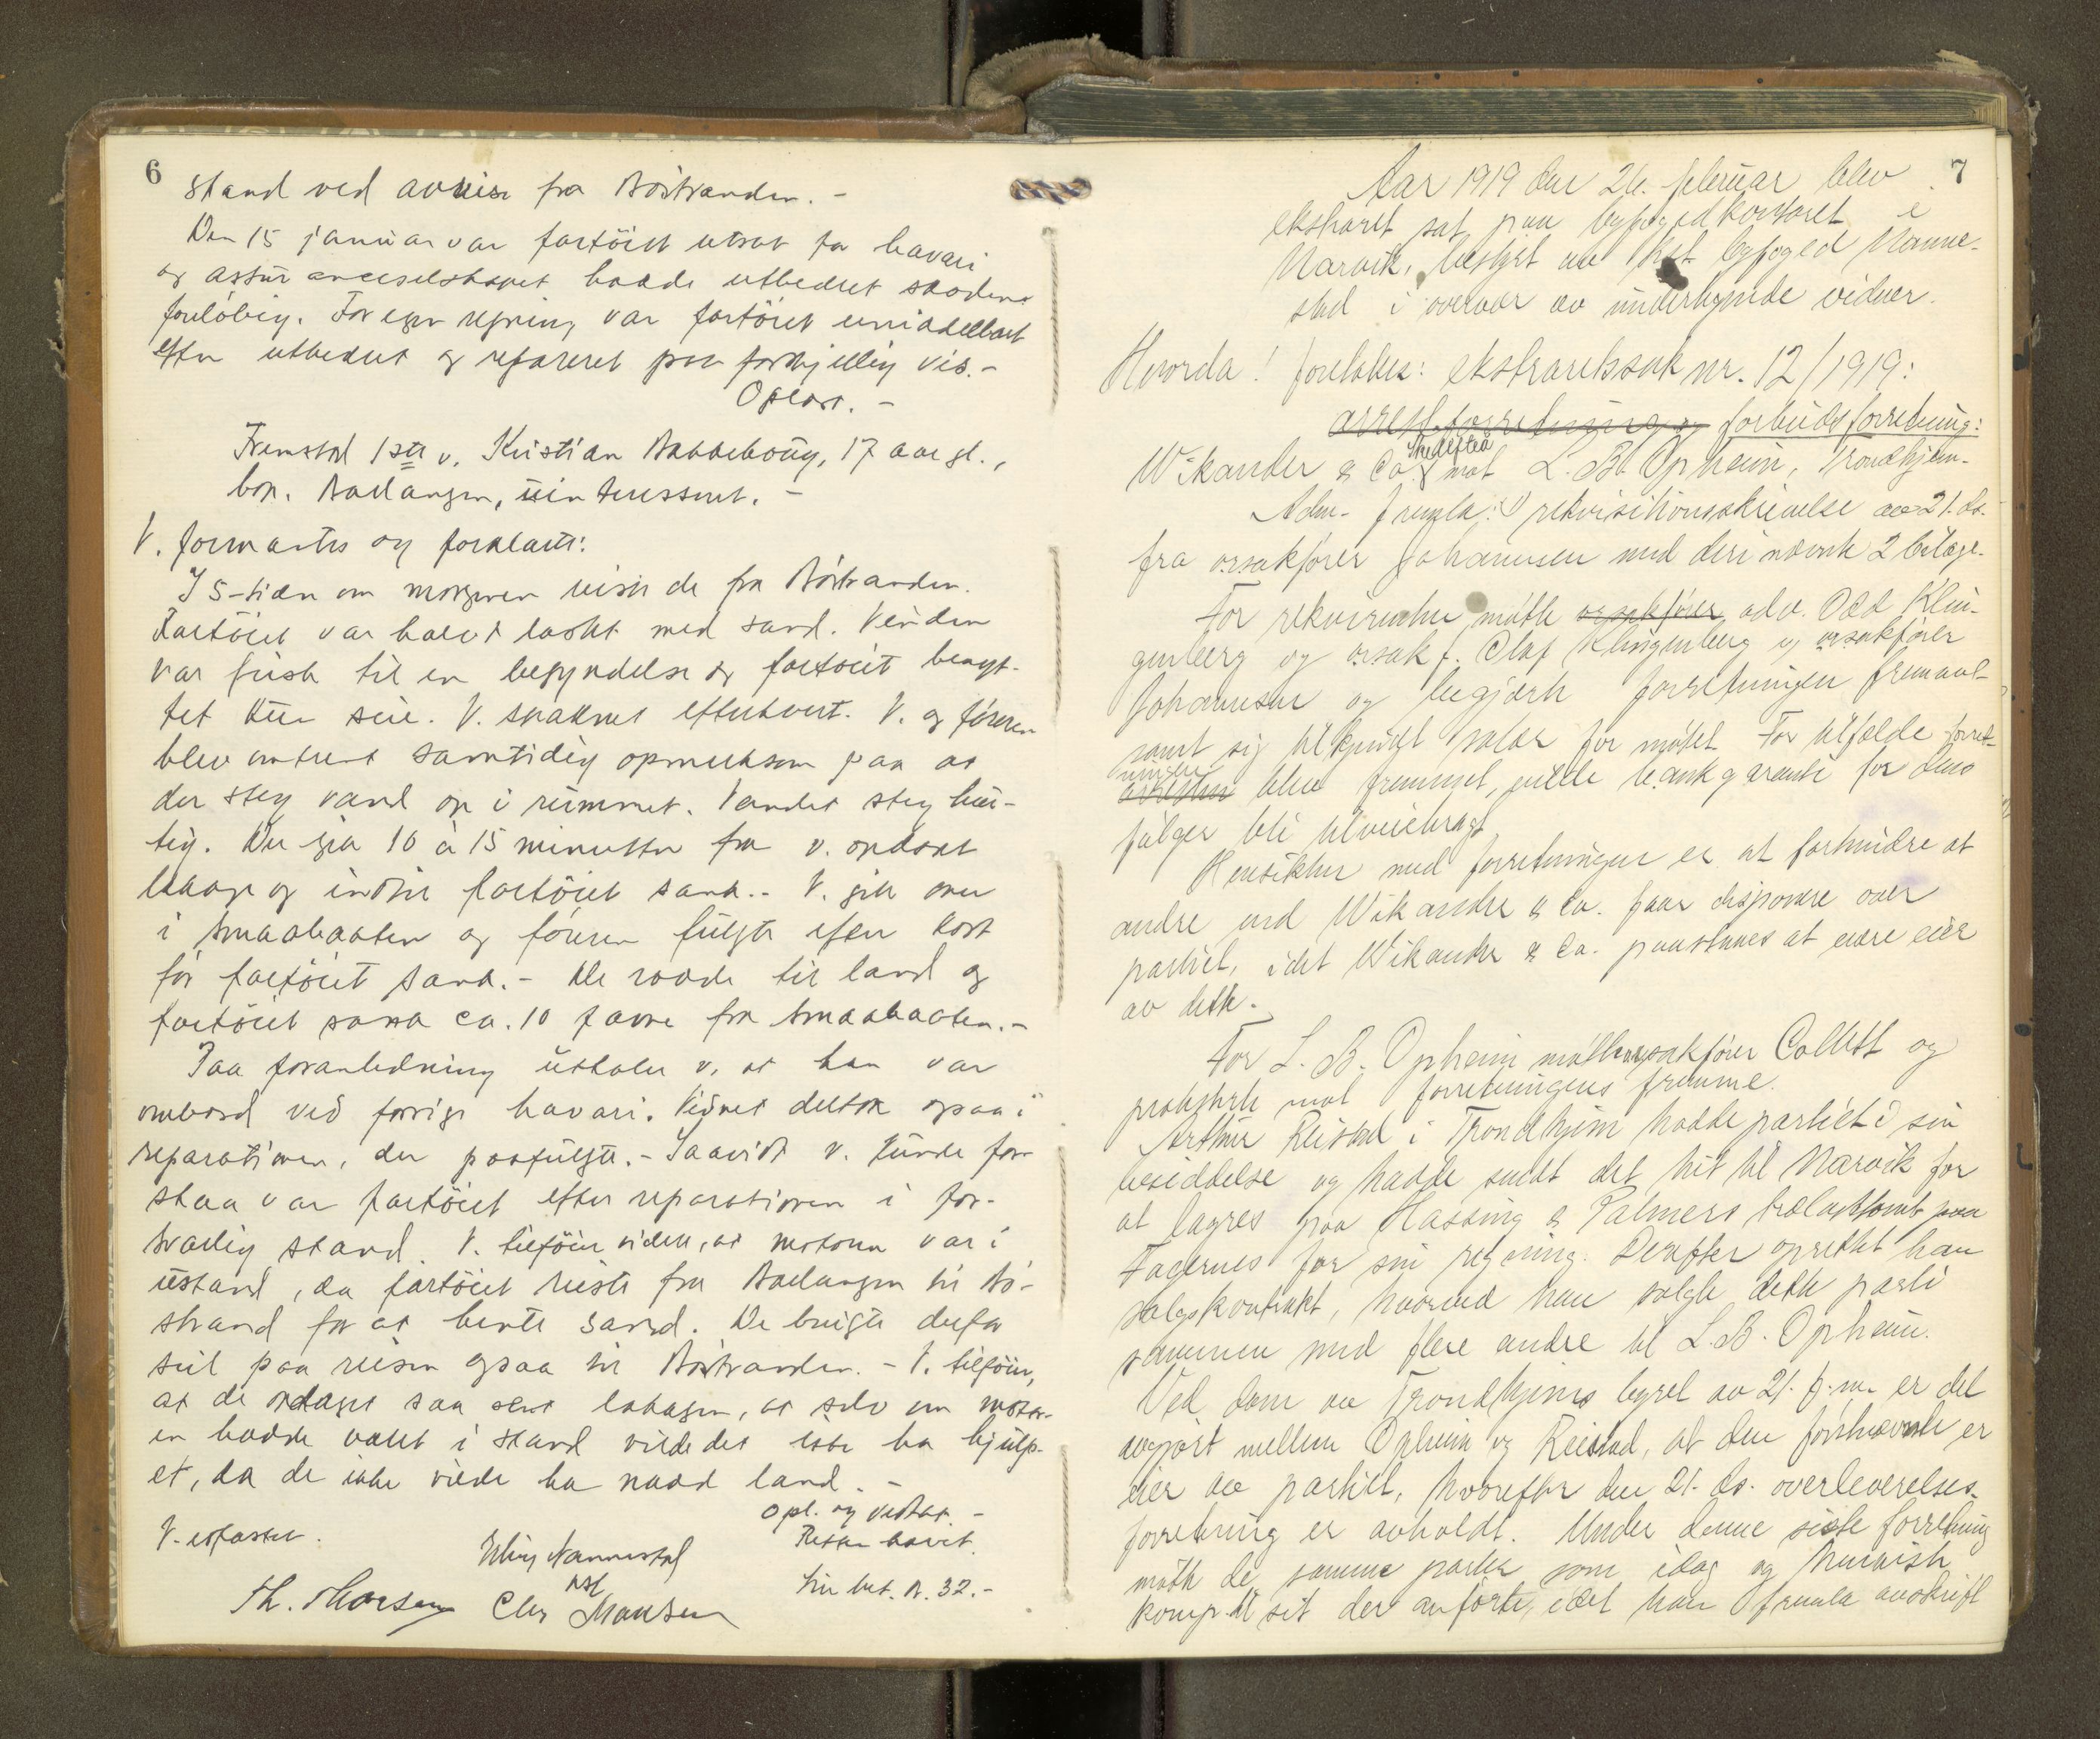 6
stand ved avreise fra Böstranden. -
Den 15 januar var fartöiet utsat for havari
og assuranceselskapet hadde utbedret skaden
foreløbig. For egen regning var fartöiet umiddelbart
efter utbedret og repareret paa forskjellig vis. -
Oplæst. -
Fremstod 1ste v. Kristian                 , 17 aar gl.,
bop. Ballangen, uinteressert. -
V. formantes og forklarte:
I 5-tiden om morgenen reiste de fra Böstranden.
Fartöiet var halvt lastet med sand. Vinden
var frisk til en begyndelse og fartöiet benyt-
tet kun seil. V. spaknet efterhvert. V. og föreren
blev omtrent samtidig opmerksom paa at
der steg vand op i rummet. Vandet steg hur-
tig. Der gik 10 à 15 minutter fra v. opdaget
lækage og indtil fartöiet sank. - V. gik over
i smaabaaten og föreren fulgte efter kort
för fartöiet sank. - De rodde til land og
fartöiet sank ca. 10 favne fra smaabaaten. -
Paa foranledning uttaler v. at han var
ombord ved forrige havari. Vidnet deltok ogsaa i
reparationen, der paafulgte. - Saavidt v. kunde for-
staa var fartöiet efter reparationen i for-
svarlig stand. V. tilföier videre, at motoren var i
ustand, da fartöiet reiste fra Ballangen til Bö-
strand for at hente sand. De brugte derfor
seil paa reisen ogsaa til Böstranden. - V. tilföier,
at de opdaget saa sent lekagen, at selv om motor-
en hadde været i stand vilde det ikke ha hjulp-
et, da de ikke vilde ha naadd land. -
Opl. og vedtat. -
V. edfæstet.
Retten hævet.
Nannestad
kst
Th. Thorsen Chr Hansen
7
Aar 1919 den 26. februar blev
ekstraret sat paa byfogedkontoret i
Narvik, bestyret av kst byfoged Nanne-
stad i overvær av undertegnede vidner.
Hvorda! foretokes: ekstraretssak nr. 12/1919:
arrestforretning og forbudsforretning:
Wikander & Co. Skellefteå mot L. B. Opheim, Trondhjem.
Adm. fremla: 1) rekvisitionsskrivelse av 21. ds.
fra o.r.sakfører Johannesen med deri nævnte 2 bilage.
For rekvirenten møtte orsakfører adv. Odd Klin-
genberg og orsakf. Olaf Klingenberg og orsakfører
Johannesen og begjærte forretningen fremmet
samt sig tilkjendt salær for møtet. For tilfælde forret-
ningen arresten blev fremmet, vilde bankgaranti for dens
følger bli tilveiebragt.
Hensikten med forretningen er at forhindre at
andre end Wikander & Co. faar disponere over
partiet, idet Wikander & Co. paastaaes at være eier
av dette.
For L. B. Opheim møtte orsakfører Collett og
protesterte mot forretningens fremme.
Arthur Reistad i Trondhjem hadde partiet i sin
besiddelse og hadde sendt det hit til Narvik for
at lagres paa Hassing & Palmers trælasttomt paa
Fagernes for sin regning. Derefter oprettet han
salgskontrakt, hvorved han solgte dette parti
sammen med flere andre til L. B. Opheim.
Ved dom av Trondhjems byret av 21. f. m. er det
avgjort mellem Opheim og Reistad, at den førstnævnte er
eier av partiet, hvorefter den 21. ds. overleverelses-
forretning er avholdt. Under denne siste forretning
møtte de samme parter som idag og henviste
komp. til sit der anførte, idet han fremla avskrift